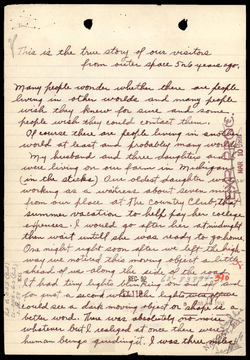 This is the true story of our visitors
from outer space 5 or 6 years ago.
Many people wonder whether there are people
living in other worlds and many people
wish they knew for sure and some
people wish they could contact them.
Of course there are people living in another
world at least and probably many worlds.
My husband and three daughters and I
were living on our farm in Michigan
(in the sticks) Our oldest daughter was
working as a waitress about seven miles
from our place at The Country Club, for
summer vacation to help pay her college
expenses. I would go after her at midnight
then wait until she was ready to go home.
One night right soon after we left the high
way we noticed this moving object a little
ahead of us along the side of the road.
It had tiny lights blinking on and off and
for just a second when the lights went off we
could see a dark moving object or shape
better word. There was absolutely no noise
whatever but I realized at once there were
human beings guiding it. I was three miles